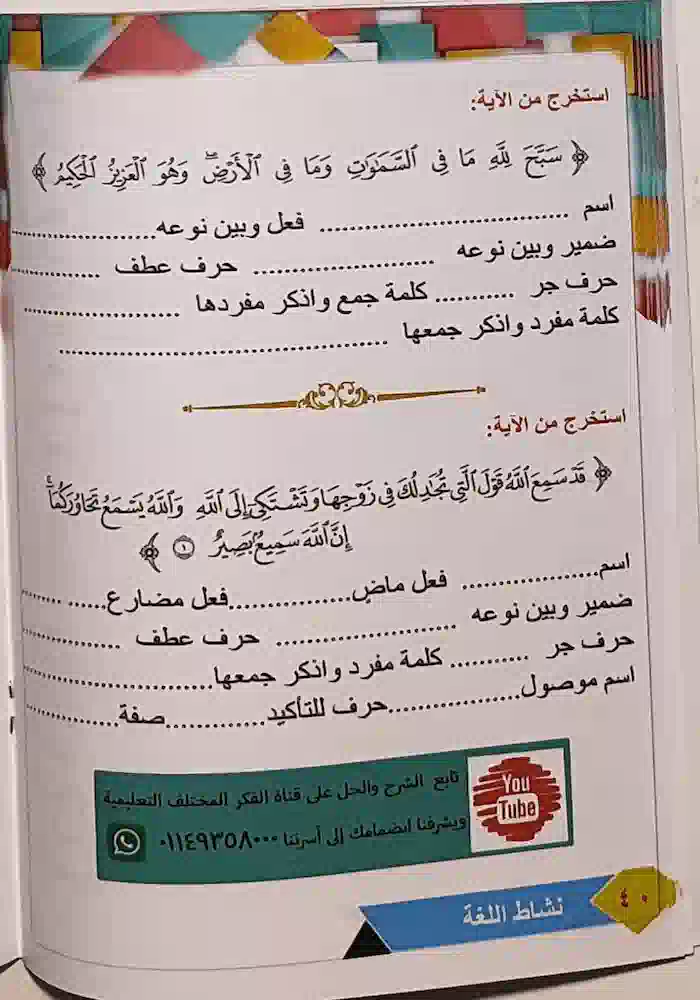 استخرج من الآية:
﴿ سَبَّحَ لِلَّهِ مَا فِي ٱلسَّمَٰوَٰتِ وَمَا فِي ٱلْأَرْضِۖ وَهُوَ ٱلْعَزِيزُ ٱلْحَكِيمُ ﴾
اسم .................................. فعل وبين نوعه....................
ضمير وبين نوعه ......................... حرف عطف ............
حرف جر ........... كلمة جمع واذكر مفردها ......................
كلمة مفرد واذكر جمعها ..............................................
استخرج من الآية:
﴿ قَدْ سَمِعَ ٱللَّهُ قَوْلَ ٱلَّتِي تُجَٰدِلُكَ فِي زَوْجِهَا وَتَشْتَكِيٓ إِلَى ٱللَّهِ وَٱللَّهُ يَسْمَعُ تَحَاوُرَكُمَآۚ
إِنَّ ٱللَّهَ سَمِيعُۢ بَصِيرٌ ١ ﴾
اسم................... فعل ماضٍ.................فعل مضارع...... ......
ضمير وبين نوعه ......................... حرف عطف ..............
حرف جر ........... كلمة مفرد واذكر جمعها..........................
اسم موصول...................حرف للتأكيد..............صفة.............
You
Tube
تابع الشرح والحل على قناة الفكر المختلف التعليمية
ويشرفنا انضمامك إلى أسرتنا ٠١١٤٩٣٥٨٠٠٠
نشاط اللغة
٤٠